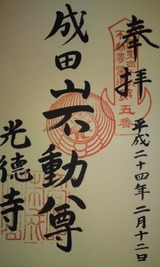 奉拝
平成二十四年二月十二日
第五番
成田山不動尊
光徳寺